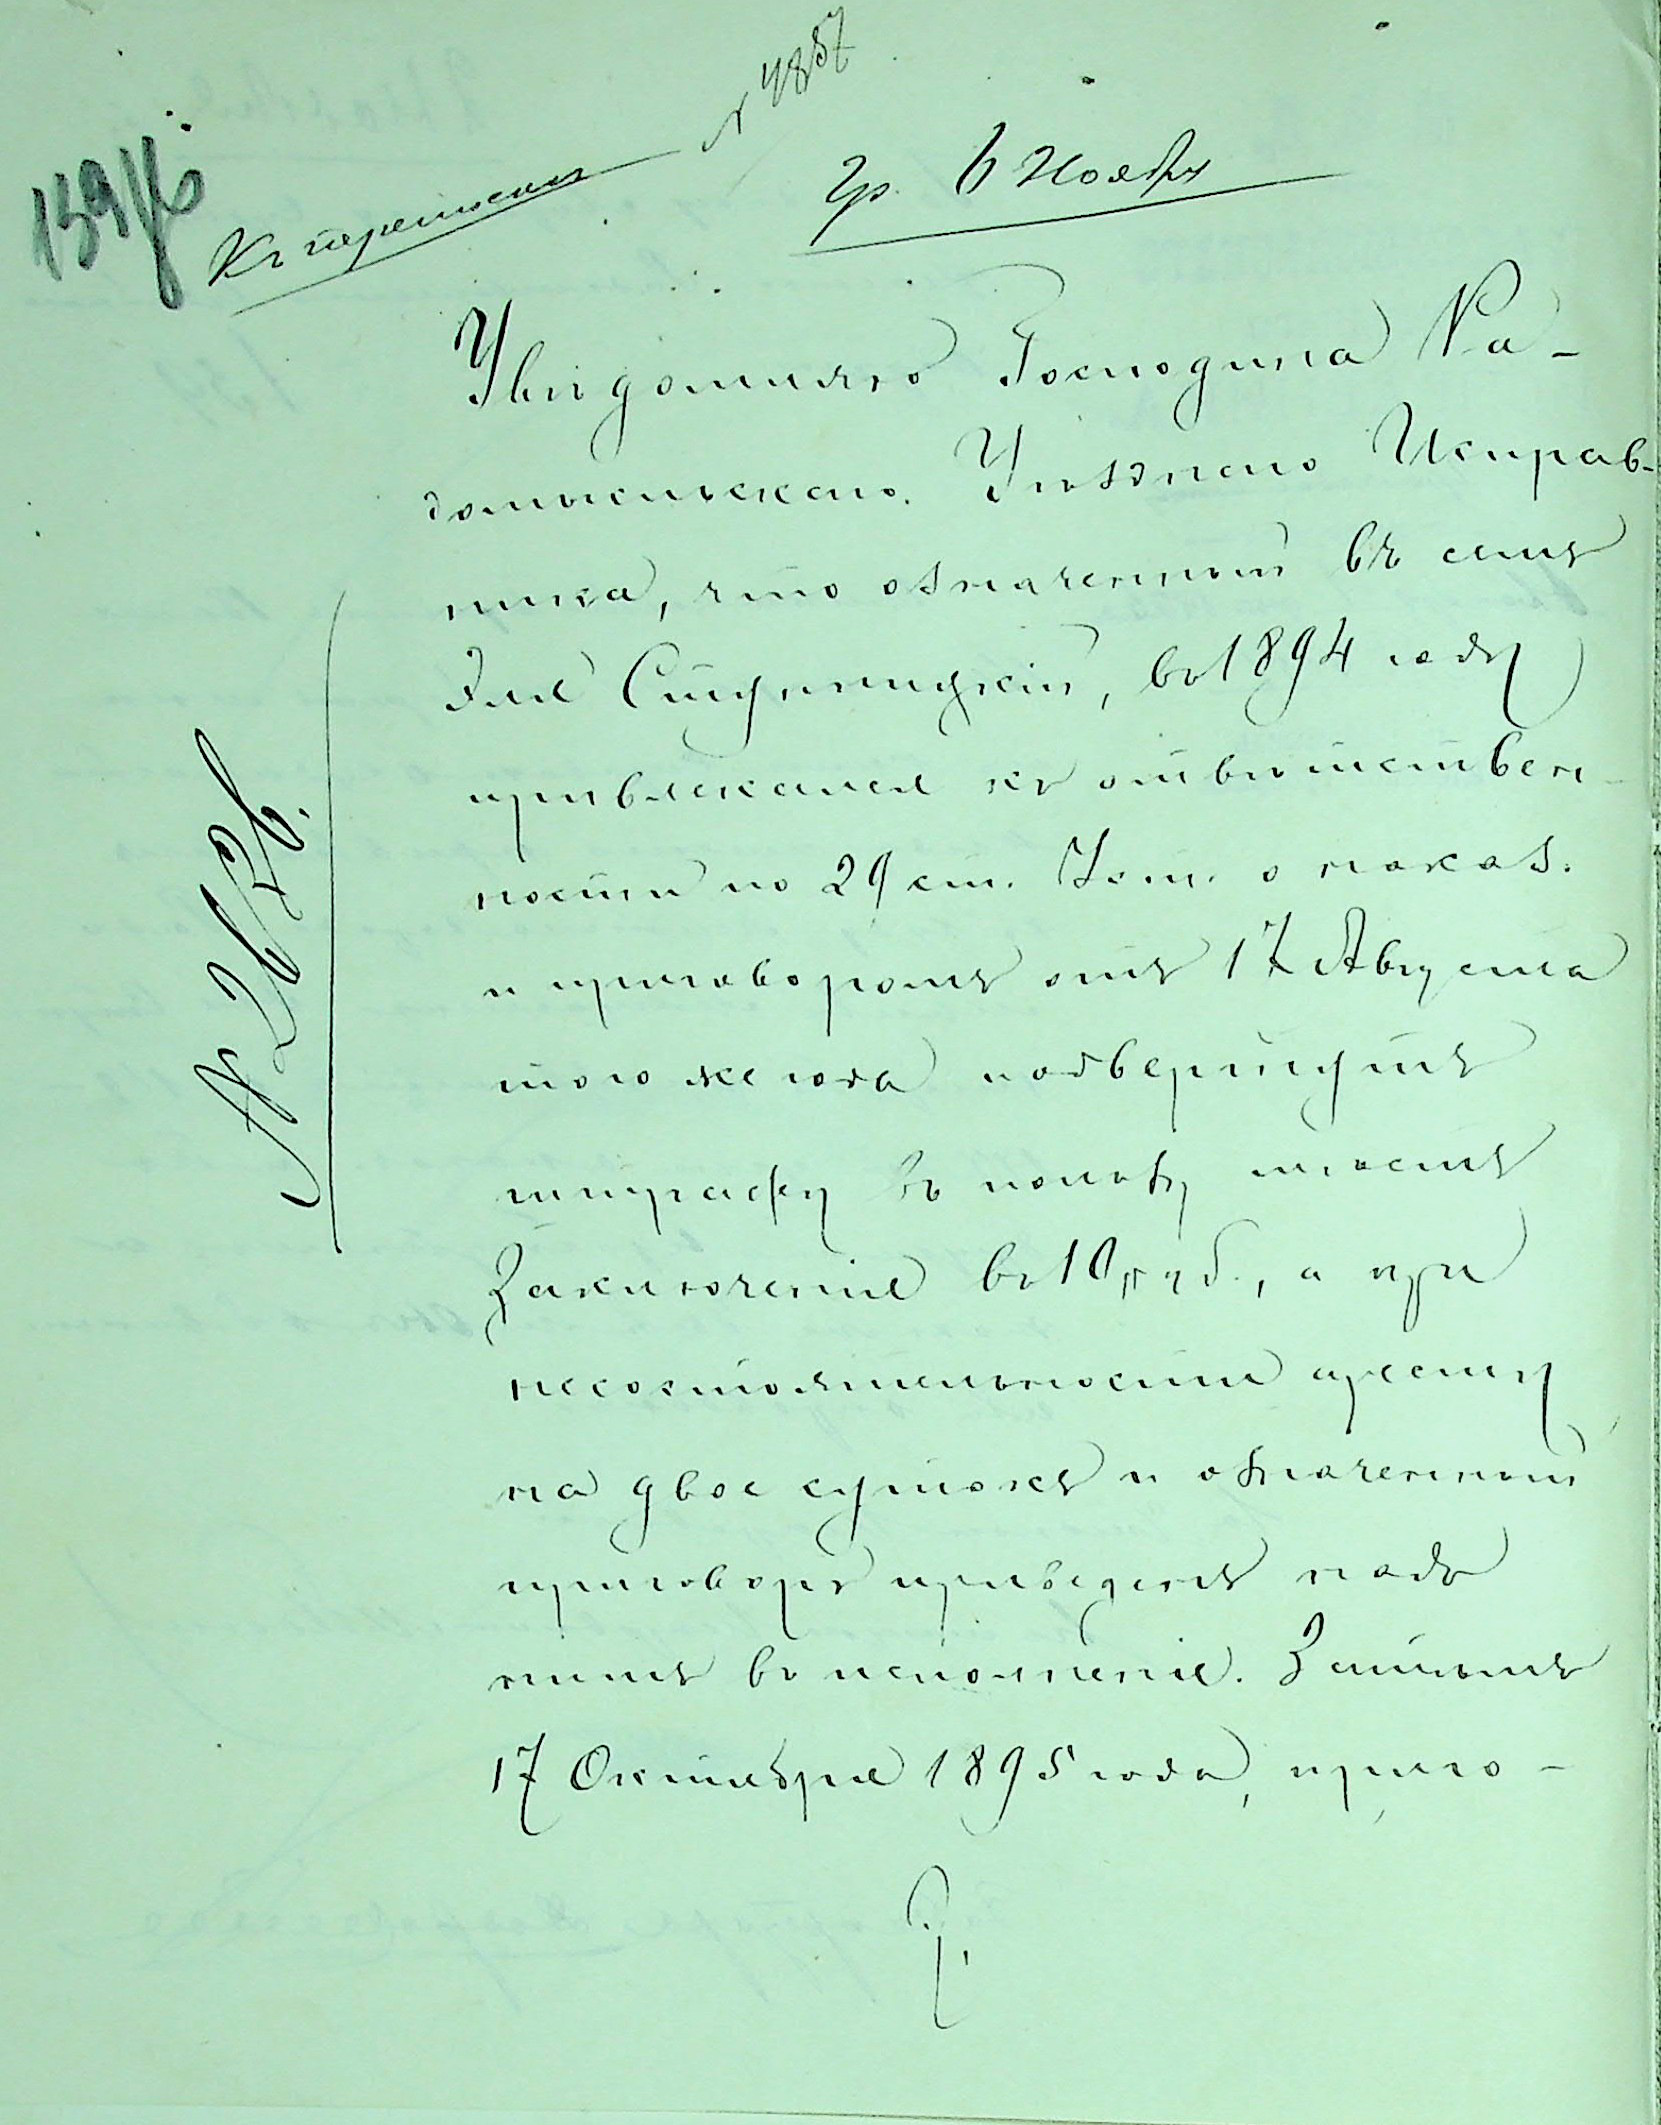 № 4857
139/16
Къ перепискѣ
Пр. 6 Ноября
Увѣдомляю Господина Ра-
домысльскаго Уѣзднаго Исправ-
ника, что означенный въ семъ
Эля, въ 1894 году
привлекался къ отвѣтствен-
ности по 29 ст. Уст. о наказ.
и приговоромъ отъ 17 Августа
того же года подвергнутъ
штрафу въ пользу мѣстъ
Заключенія въ 10 руб., а при
несостоятельности аресту
на двое сутокъ и означенный
приговоръ приведенъ надъ
нимъ въ исполненіе. Затѣмъ
17 Октября 1895 года, приго-